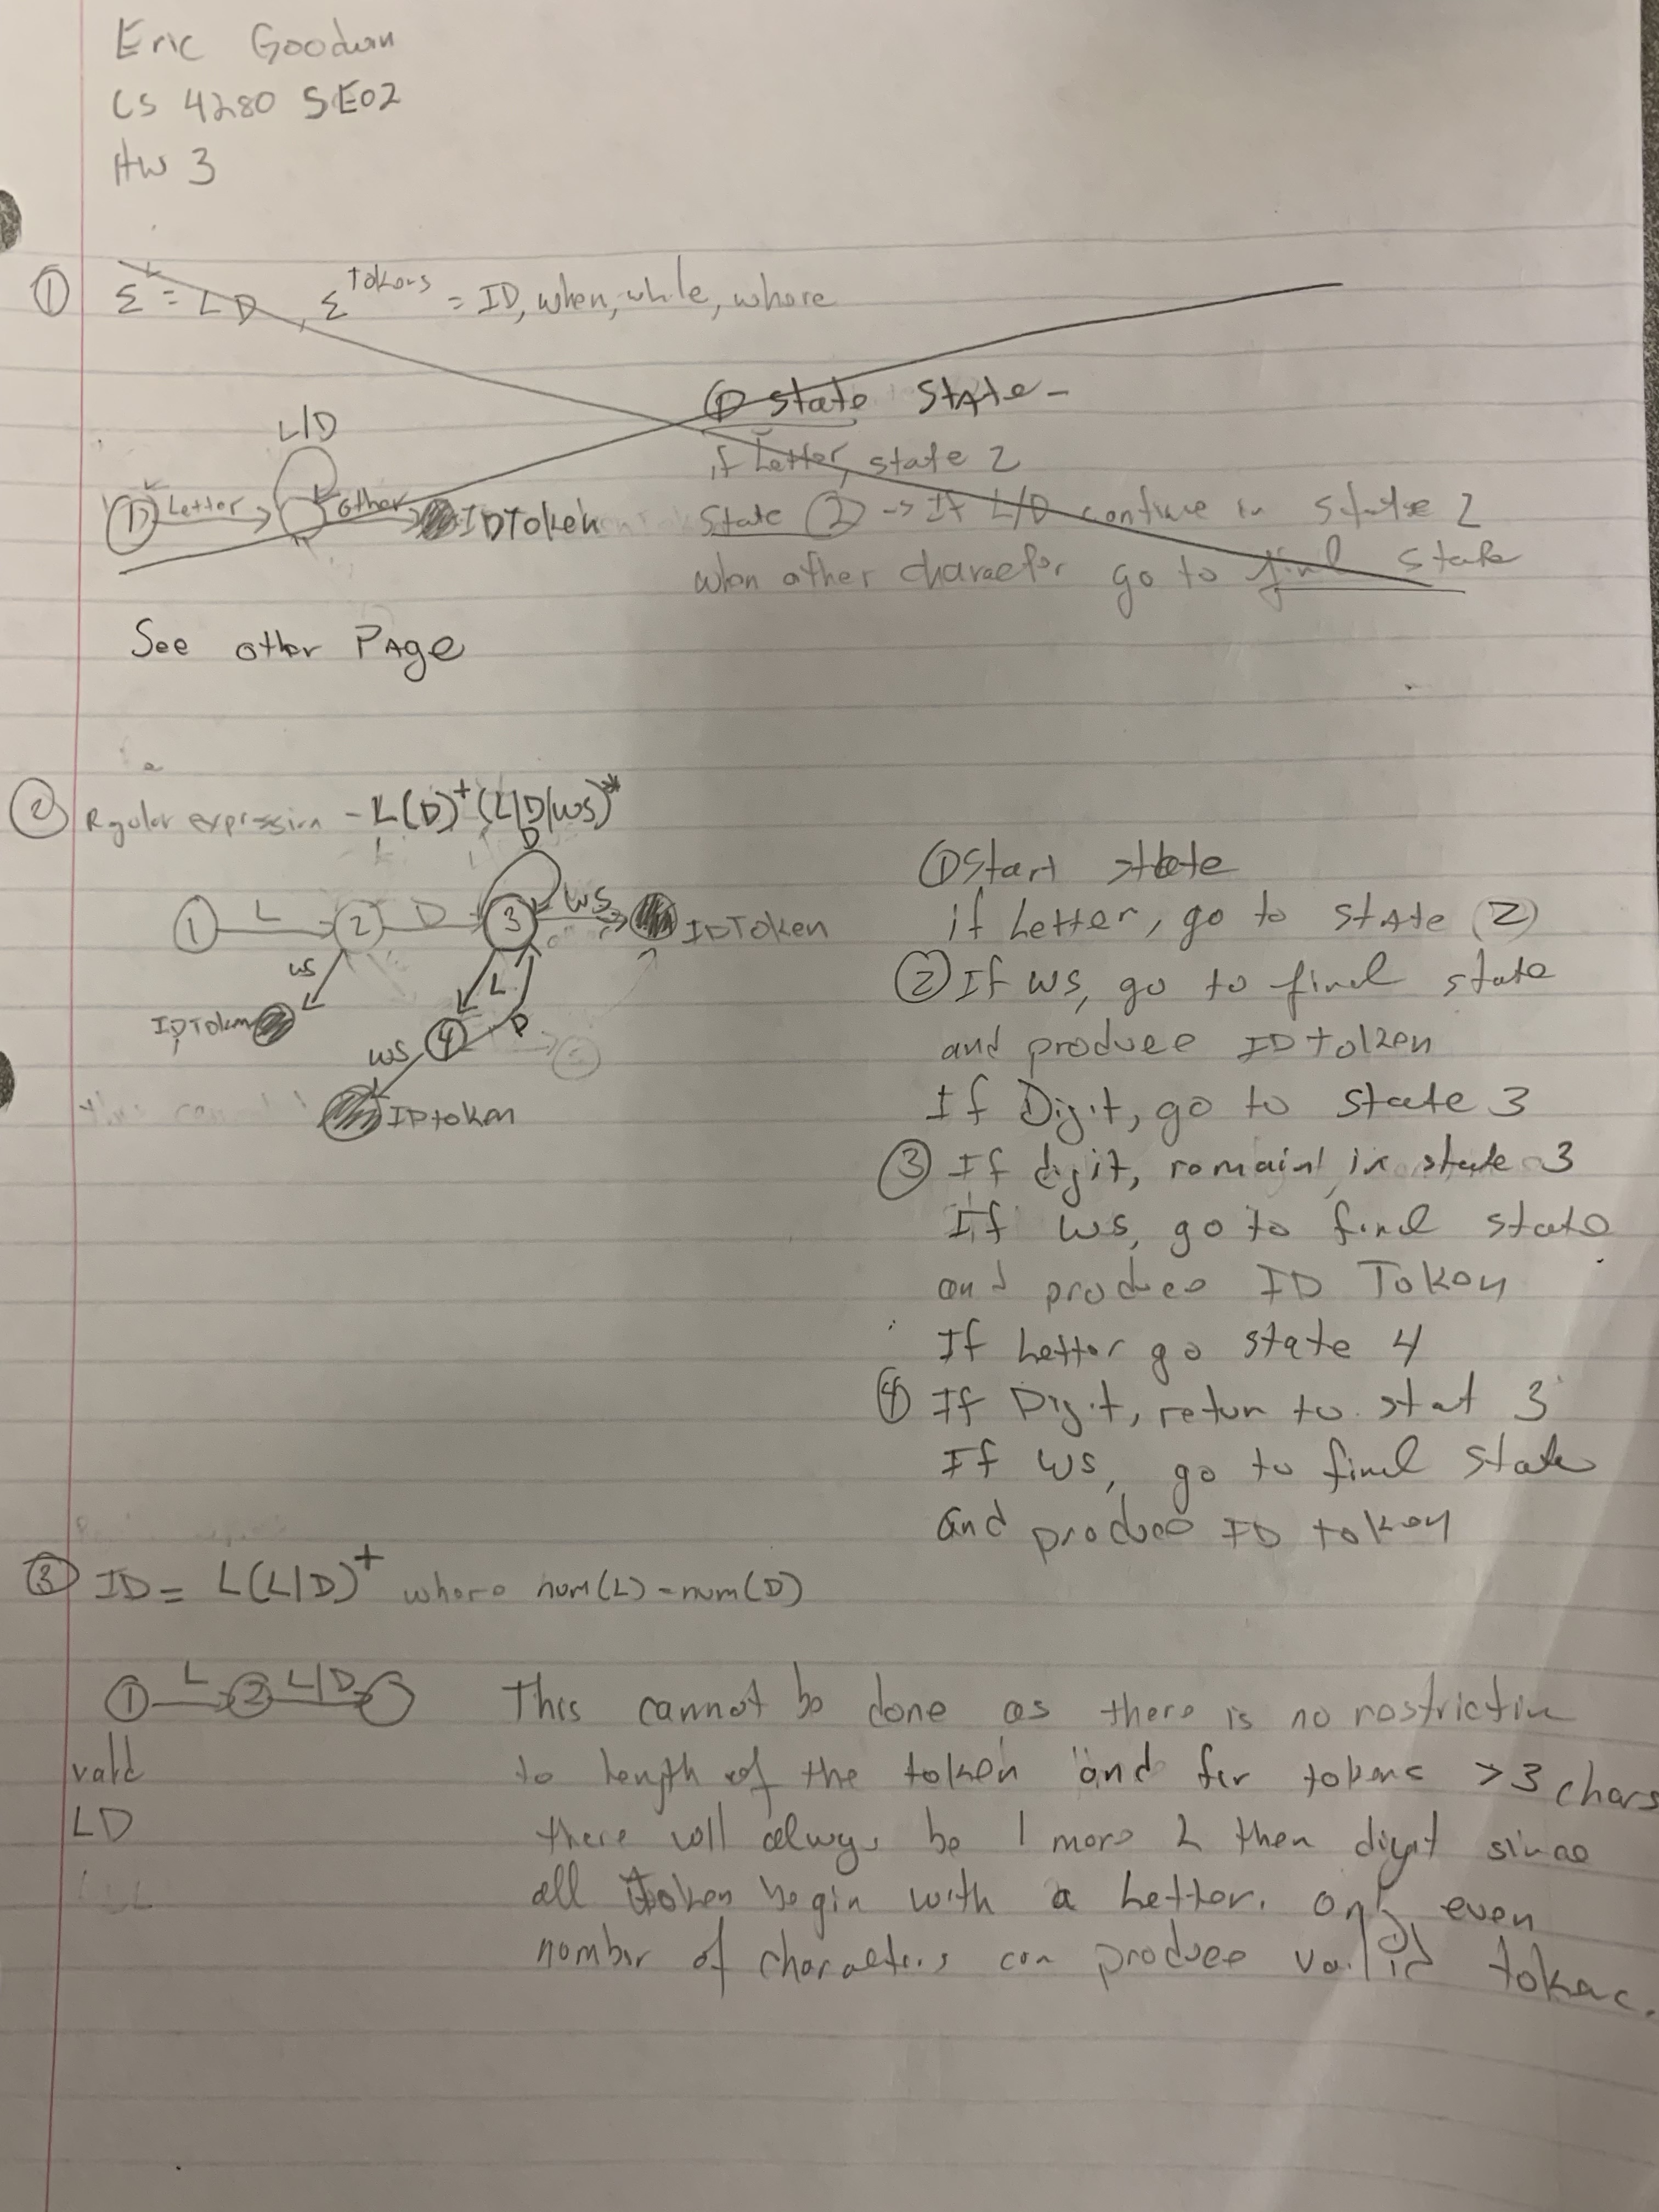 Eric Goodwin
CS 4280 SE02
HW 3
① Σ^L = L D, Σ^Tokens = ID, when, while, where
① state State -
L/D
if Letter, state 2
① Letter other IDToken
State ② -> If L/D continue in state 2
when other character go to final state
See other PAge
② Rgular expression - L(D)^+(L|D|WS)^*
D
① L ② D ③ WS IDToken
WS L D
IDToken
④
WS
IDtoken
① Start state
if Letter, go to stAte ②
② If WS, go to final state
and produce ID token
If Digit, go to state 3
③ If digit, remain in state 3
If WS, go to final state
and produce ID Token
If Letter go state 4
④ If Digit, return to stat 3
If WS, go to final state
and produce ID token
③ ID = L(L|D)^+ where num(L) = num(D)
① L ② L|D
valid
LD
This cannot be done as there is no restriction
to length of the token and for tokens >3 chars
there will always be 1 more L then digit since
all token begin with a Letter. only even
number of characters can produce valid tokens.